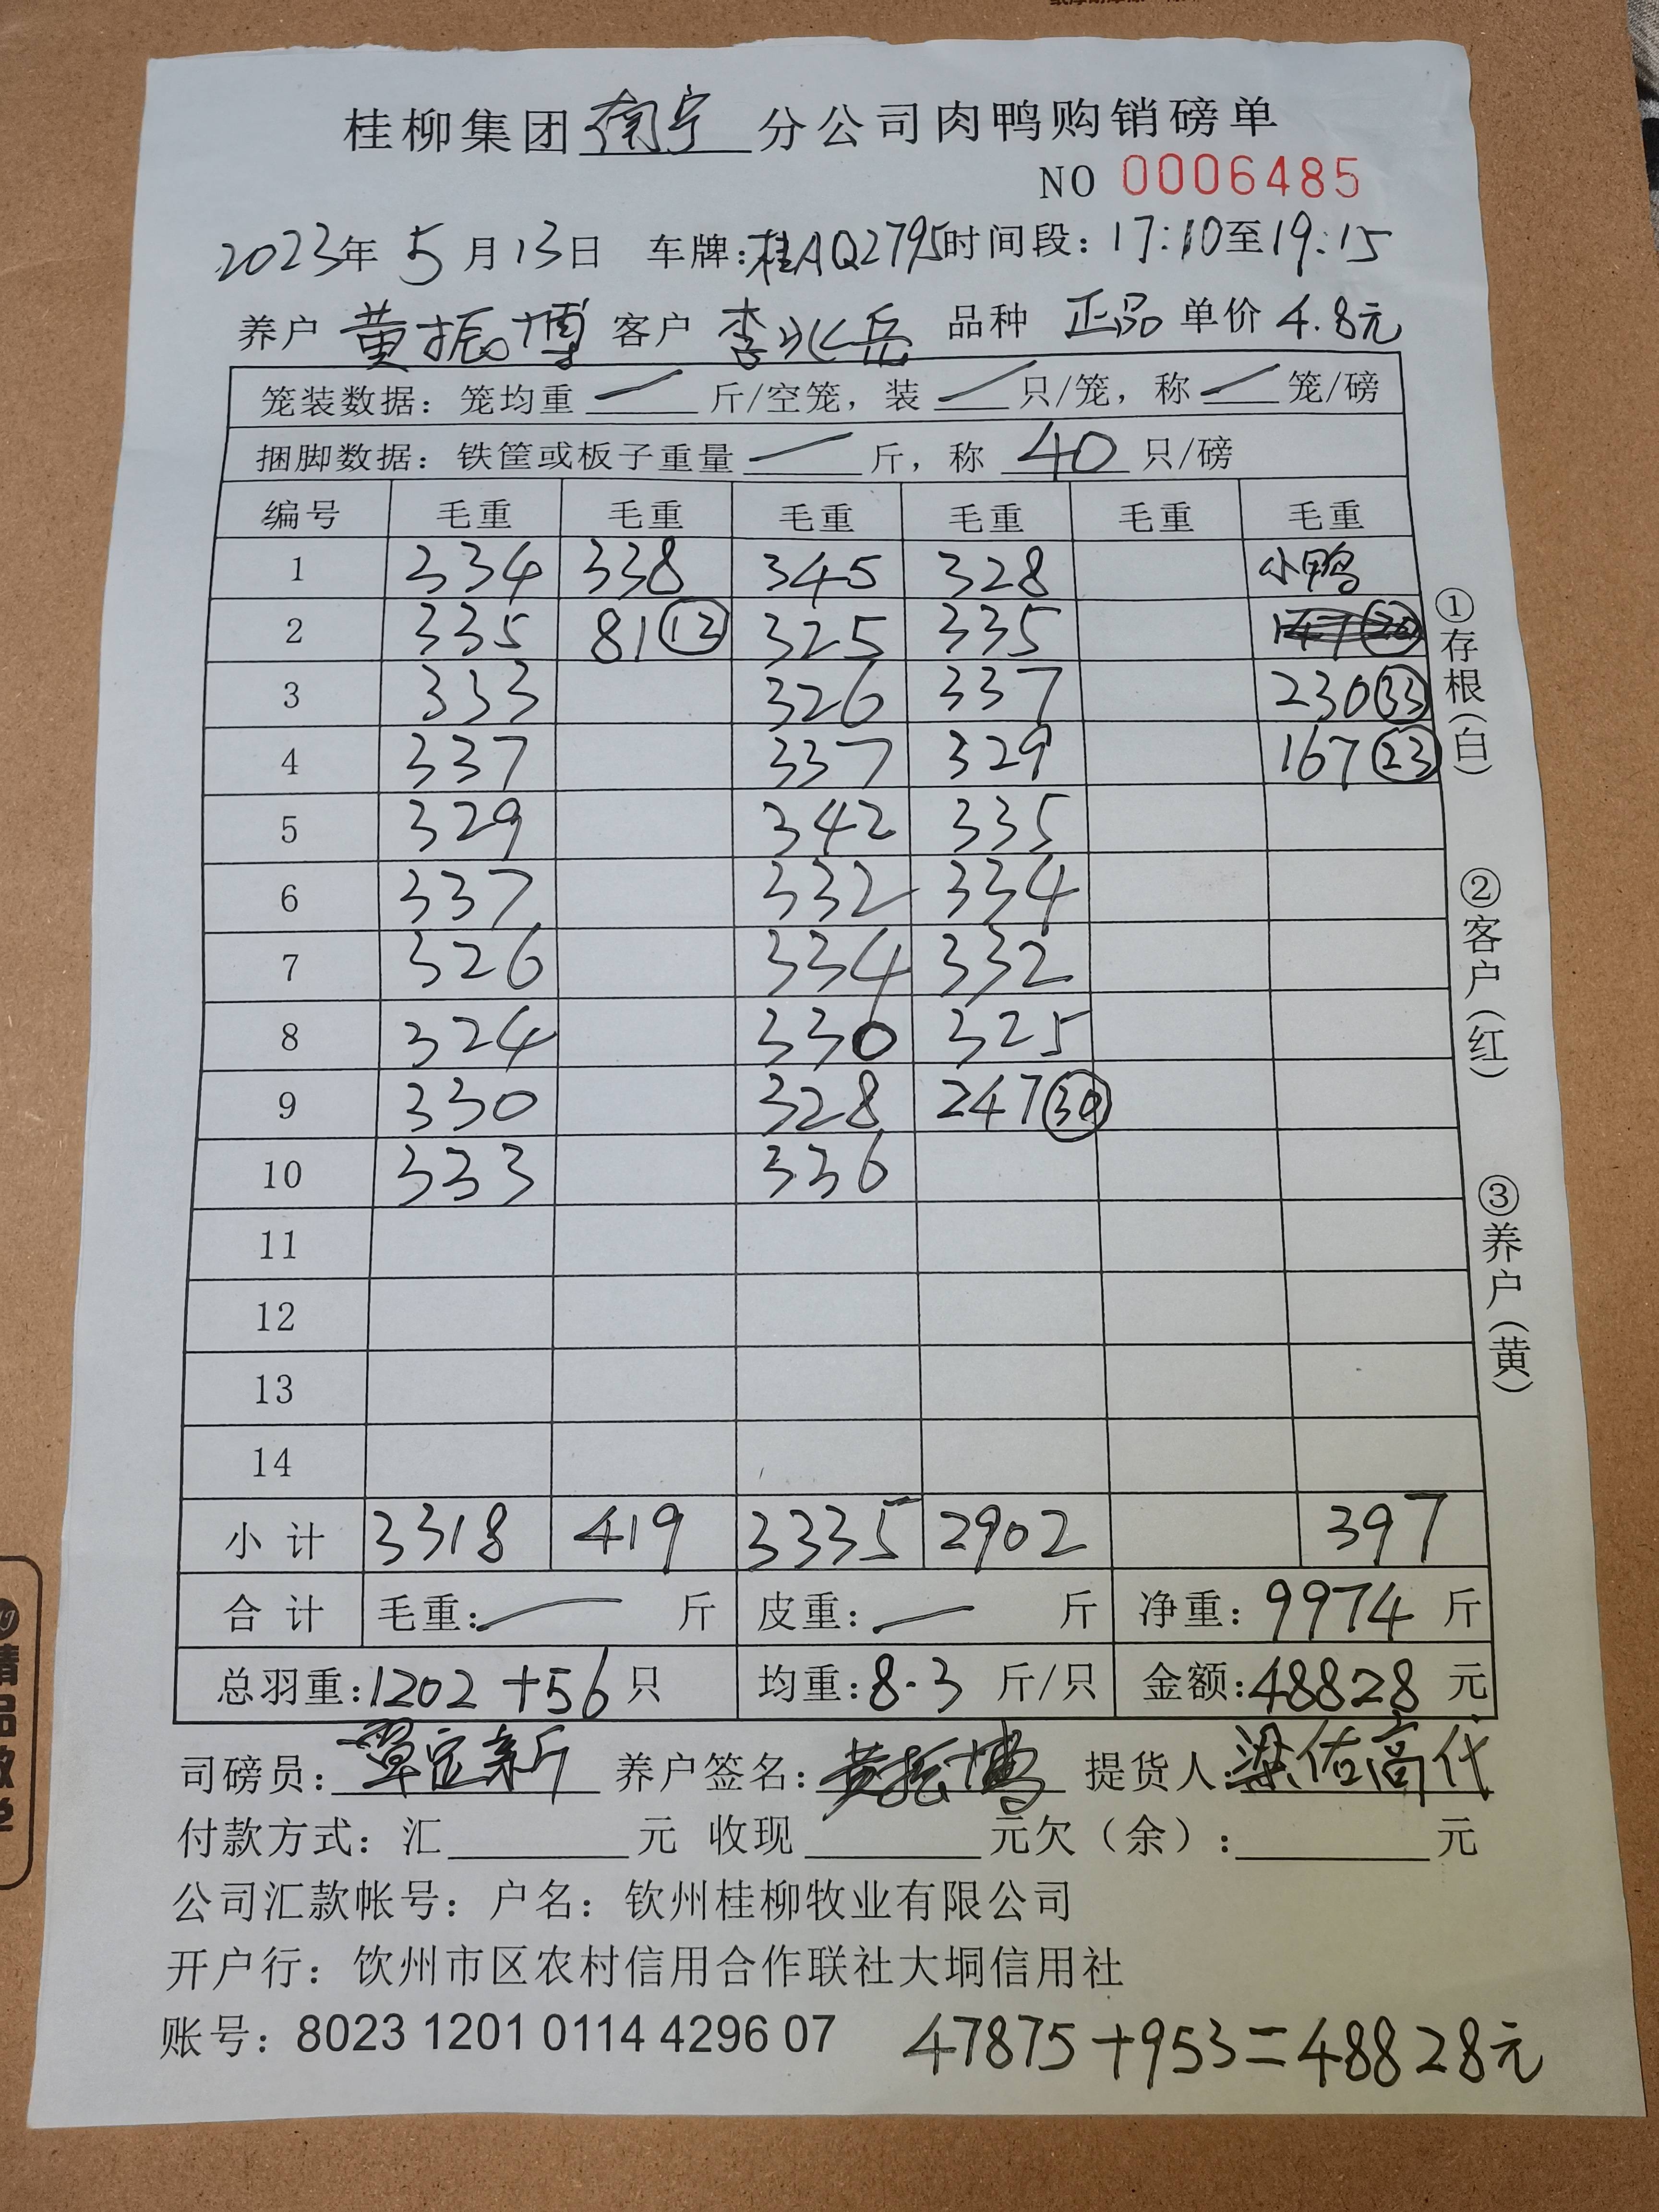 桂柳集团南宁分公司肉鸭购销磅单
NO 0006485
2023年 5月13日 车牌:桂AQ2795时间段:17:10至19:15
养户 黄振博 客户 李兆岳 品种 正品 单价 4.8元
笼装数据:笼均重 — 斤/空笼,装 — 只/笼,称 — 笼/磅
捆脚数据:铁筐或板子重量 — 斤,称 40 只/磅
编号 毛重 毛重 毛重 毛重 毛重 毛重
1 334 338 345 328 小鸭
2 335 81⑫ 325 335
3 333 326 337 230㉝
4 337 337 329 167㉓
5 329 342 335
6 337 332 334
7 326 334 332
8 324 330 325
9 330 328 247㉚
10 333 336
11
12
13
14
小计 3318 419 3335 2902 397
合计 毛重:— 斤 皮重:— 斤 净重:9974 斤
总羽重:1202+56只 均重:8.3 斤/只 金额:48828 元
司磅员:覃定新 养户签名:黄振博 提货人:梁佑高代
付款方式:汇 元 收现 元欠(余): 元
公司汇款帐号:户名:钦州桂柳牧业有限公司
开户行:饮州市区农村信用合作联社大垌信用社
账号:8023 1201 0114 4296 07 47875+953=48828元
①存根(白)
②客户(红)
③养户(黄)